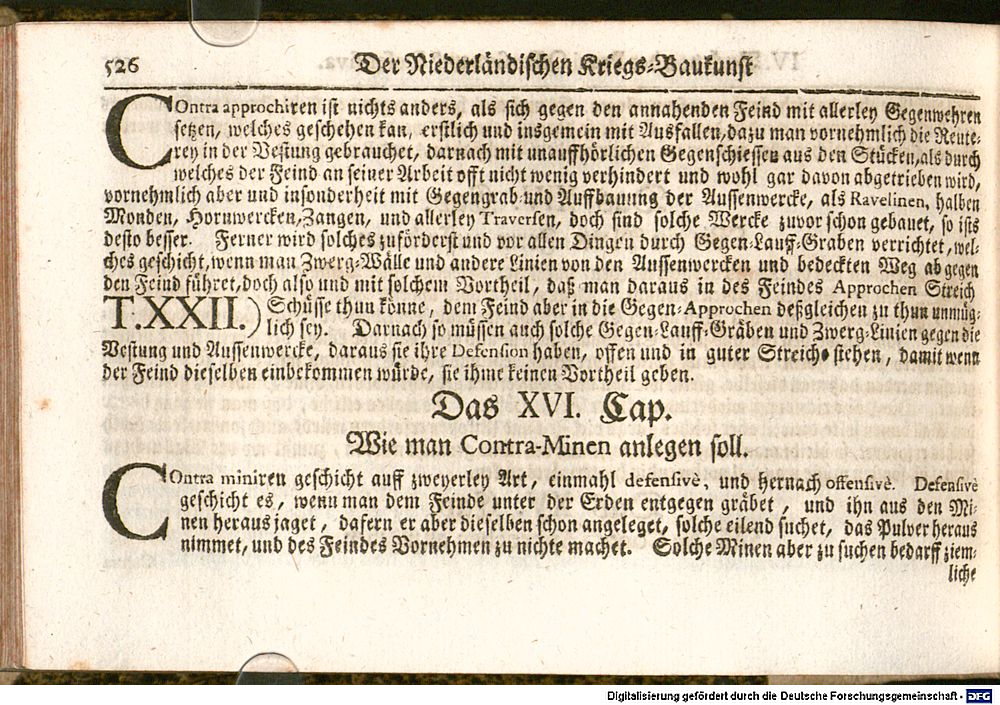 526 Der Niederländischen Kriegs-Baukunst
COntra approchiren ist nichts anders, als sich gegen den annahenden Feind mit allerley Gegenwehren
setzen, welches geschehen kan, erstlich und insgemein mit Ausfallen, dazu man vornehmlich die Reute-
rey in der Vestung gebrauchet, darnach mit unauffhörlichen Gegenschiessen aus den Stücken, als durch
welches der Feind an seiner Arbeit offt nicht wenig verhindert und wohl gar davon abgetrieben wird,
vornehmlich aber und insonderheit mit Gegengrab- und Auffbauung der Aussenwercke, als Ravelinen, halben
Monden, Hornwercken, Zangen, und allerley Traversen, doch sind solche Wercke zuvor schon gebauet, so ists
desto besser. Ferner wird solches zuförderst und vor allen Dingen durch Gegen-Lauff-Graben verrichtet, wel-
ches geschicht, wenn man Zwerg-Wälle und andere Linien von den Aussenwercken und bedeckten Weg ab gegen
den Feind führet, doch also und mit solchem Vortheil, daß man daraus in des Feindes Approchen Streich
T.XXII.) Schüsse thun könne, dem Feind aber in die Gegen-Approchen deßgleichen zu thun unmüg-
lich sey. Darnach so müssen auch solche Gegen-Lauff-Gräben und Zwerg-Linien gegen die
Vestung und Aussenwercke, daraus sie ihre Defension haben, offen und in guter Streiche stehen, damit wenn
der Feind dieselben einbekommen würde, sie ihme keinen Vortheil geben.
Das XVI. Cap.
Wie man Contra-Minen anlegen soll.
COntra miniren geschicht auff zweyerley Art, einmahl defensivè, und hernach offensivè. Defensivè
geschicht es, wenn man dem Feinde unter der Erden entgegen gräbet, und ihn aus den Mi-
nen heraus jaget, dafern er aber dieselben schon angeleget, solche eilend suchet, das Pulver heraus
nimmet, und des Feindes Vornehmen zu nichte machet. Solche Minen aber zu suchen bedarff ziem-
liche
Digitalisierung gefördert durch die Deutsche Forschungsgemeinschaft - DFG